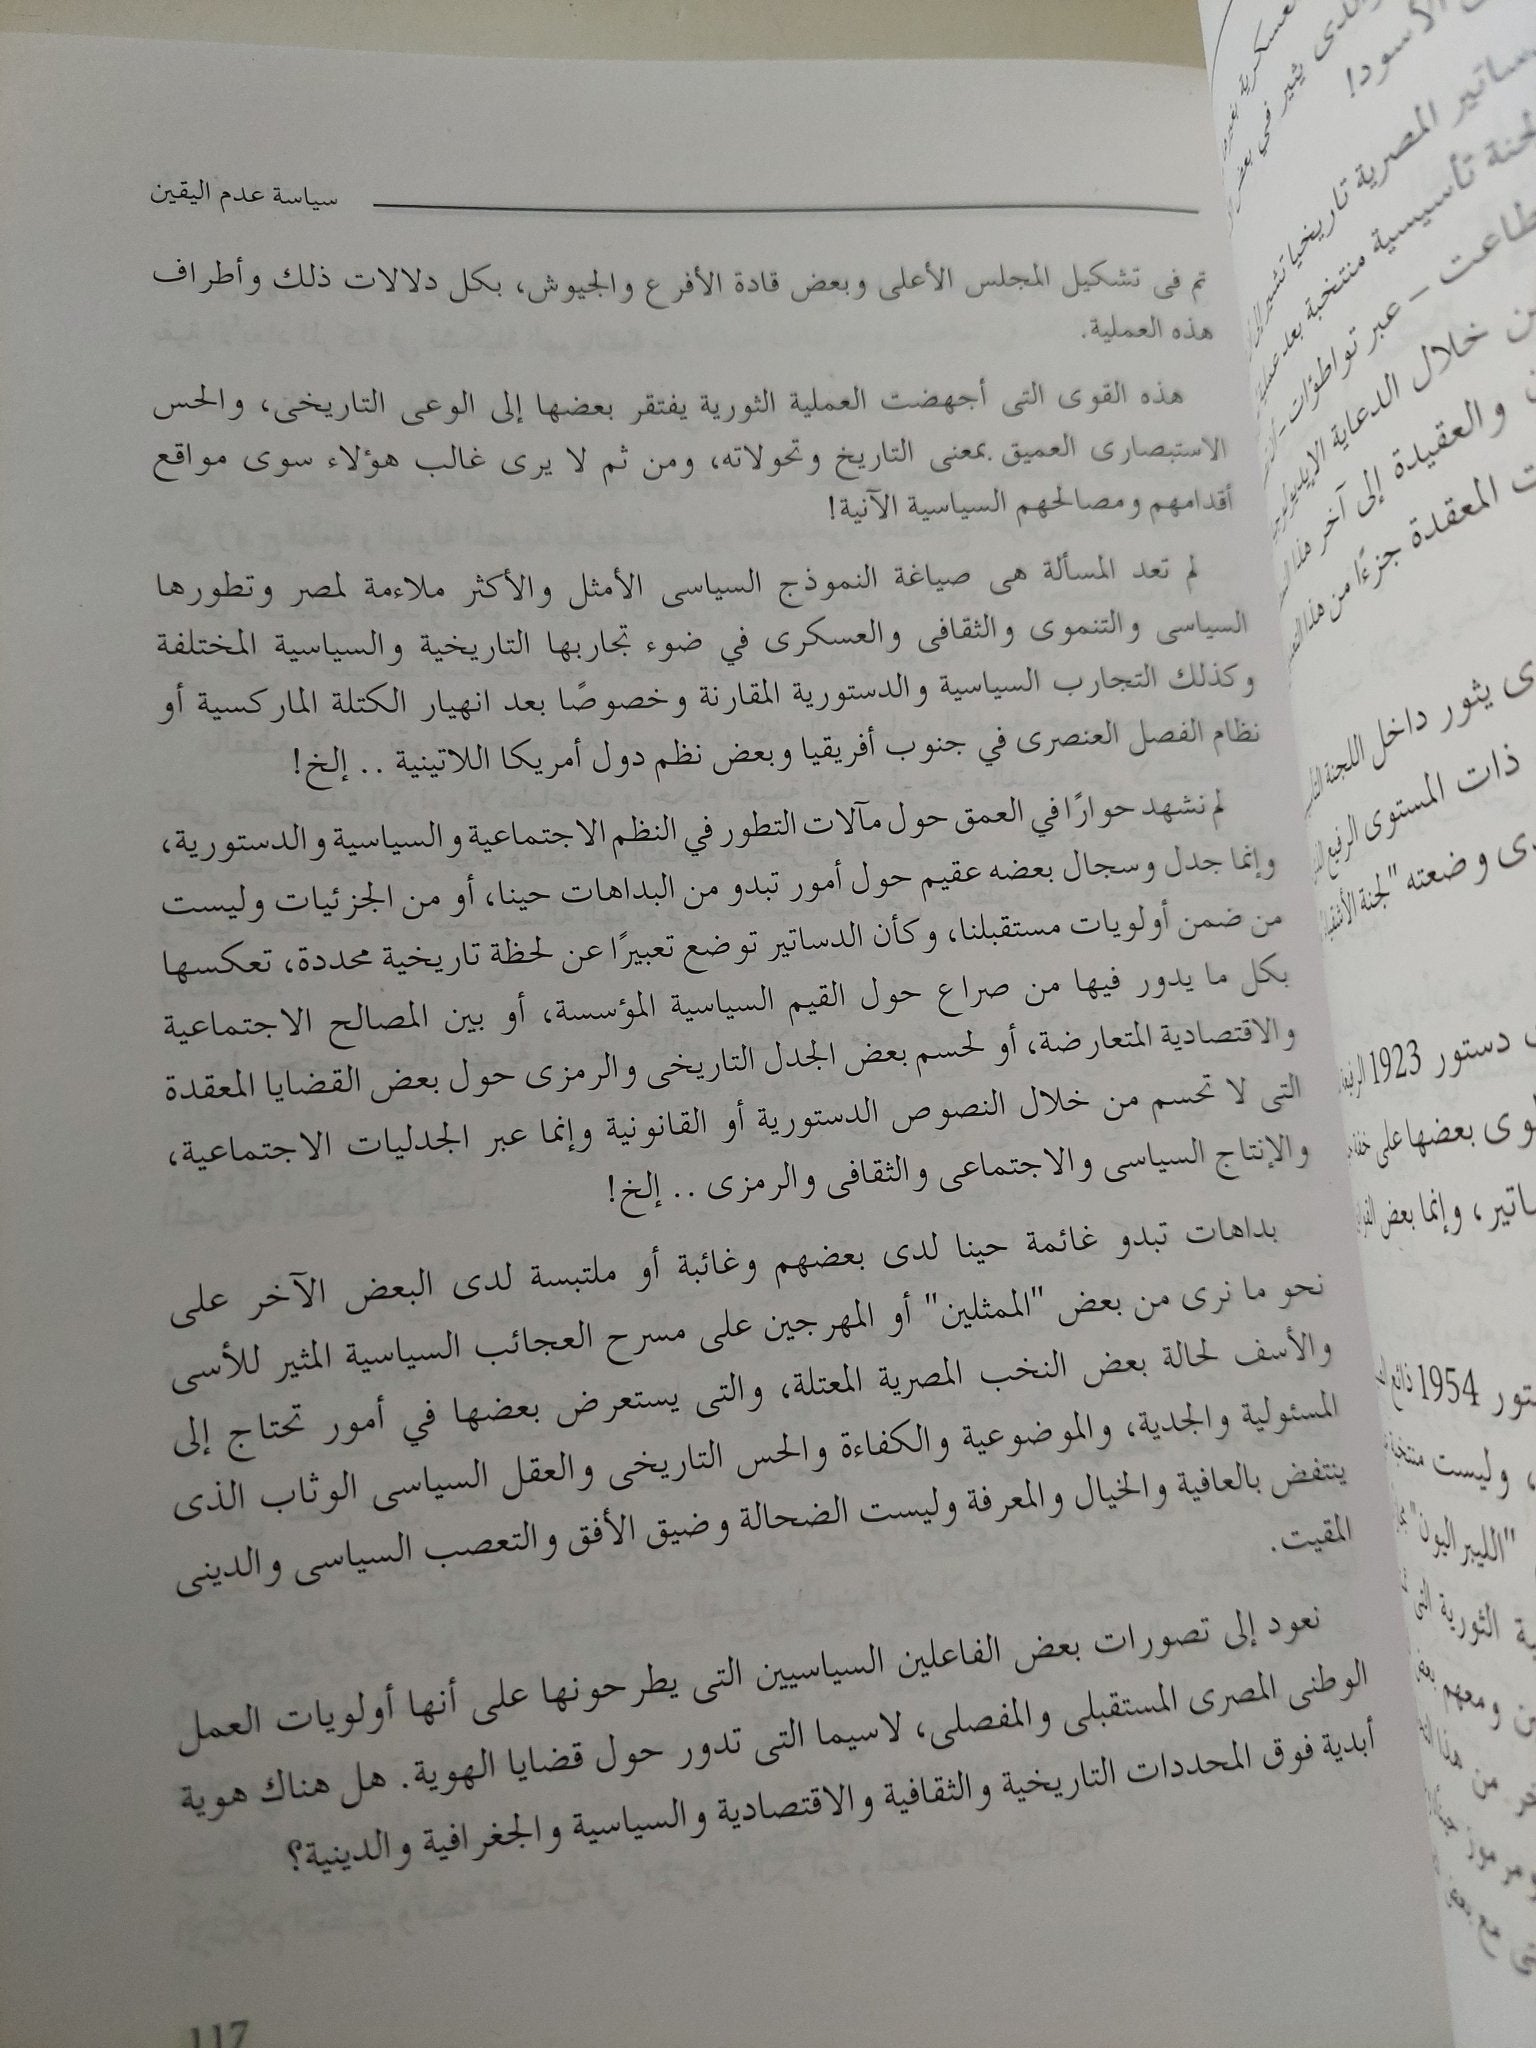 سياسة عدم اليقين
تم فى تشكيل المجلس الأعلى وبعض قادة الأفرع والجيوش، بكل دلالات ذلك وأطراف
هذه العملية.
هذه القوى التى أجهضت العملية الثورية يفتقر بعضها إلى الوعى التاريخى، والحس
الاستبصارى العميق بمعنى التاريخ وتحولاته، ومن ثم لا يرى غالب هؤلاء سوى مواقع
أقدامهم ومصالحهم السياسية الآنية!
لم تعد المسألة هى صياغة النموذج السياسى الأمثل والأكثر ملاءمة لمصر وتطورها
السياسى والتنموى والثقافى والعسكرى في ضوء تجاربها التاريخية والسياسية المختلفة
وكذلك التجارب السياسية والدستورية المقارنة وخصوصًا بعد انهيار الكتلة الماركسية أو
نظام الفصل العنصرى في جنوب أفريقيا وبعض نظم دول أمريكا اللاتينية .. إلخ!
لم نشهد حوارًا في العمق حول مآلات التطور في النظم الاجتماعية والسياسية والدستورية،
وإنما جدل وسجال بعضه عقيم حول أمور تبدو من البداهات حينا، أو من الجزئيات وليست
من ضمن أولويات مستقبلنا، وكأن الدساتير توضع تعبيرًا عن لحظة تاريخية محددة، تعكسها
بكل ما يدور فيها من صراع حول القيم السياسية المؤسسة، أو بين المصالح الاجتماعية
والاقتصادية المتعارضة، أو لحسم بعض الجدل التاريخى والرمزى حول بعض القضايا المعقدة
التى لا تحسم من خلال النصوص الدستورية أو القانونية وإنما عبر الجدليات الاجتماعية،
والإنتاج السياسى والاجتماعى والثقافى والرمزى .. إلخ!
بداهات تبدو غائمة حينا لدى بعضهم وغائبة أو ملتبسة لدى البعض الآخر على
نحو ما نرى من بعض "الممثلين" أو المهرجين على مسرح العجائب السياسية المثير للأسى
والأسف لحالة بعض النخب المصرية المعتلة، والتى يستعرض بعضها في أمور تحتاج إلى
المسئولية والجدية، والموضوعية والكفاءة والحس التاريخى والعقل السياسى الوثاب الذى
ينتفض بالعافية والخيال والمعرفة وليست الضحالة وضيق الأفق والتعصب السياسى والدينى
المقيت.
نعود إلى تصورات بعض الفاعلين السياسيين التى يطرحونها على أنها أولويات العمل
الوطنى المصرى المستقبلى والمفصلى، لاسيما التى تدور حول قضايا الهوية. هل هناك هوية
أبدية فوق المحددات التاريخية والثقافية والاقتصادية والسياسية والجغرافية والدينية؟
117
الأسود!
المصرية تاريخيا تشير إلى
لجنة تأسيسية منتخبة بعد عملية
عبر تواطؤات
خلال الدعاية
والعقيدة إلى آخر هذا
المعقدة جزءًا من هذا
يثور داخل اللجنة
ذات المستوى الرفيع
وضعته "لجنة
دستور 1923
بعضها على
وإنما بعض
1954 ذائع
، وليست منتخبة
"الليبراليون"
الثورية التى
ومعهم
من هذا